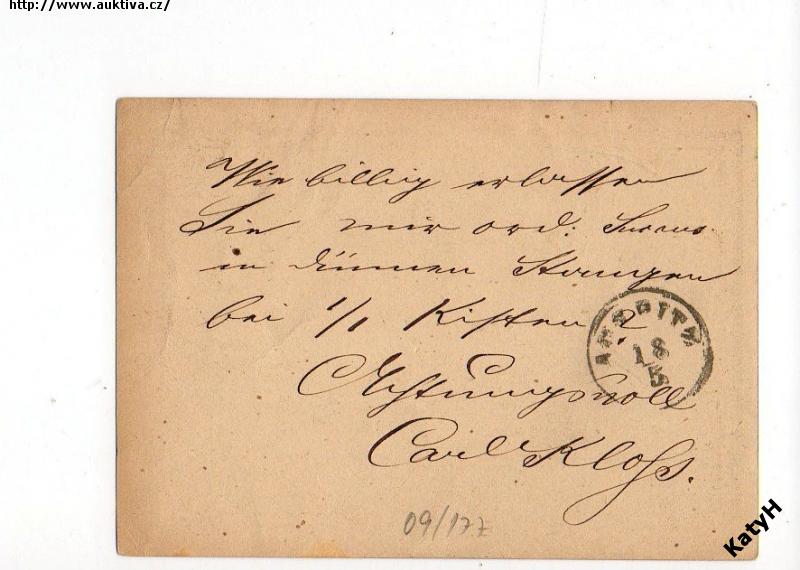 http://www.auktiva.cz/
Wie billig erlassen
Sie mir ord:
in dünnen Stangen
bei 1/1 Kisten ?
18
5
Achtungsvoll
Carl Kloss.
09/177
KatyH